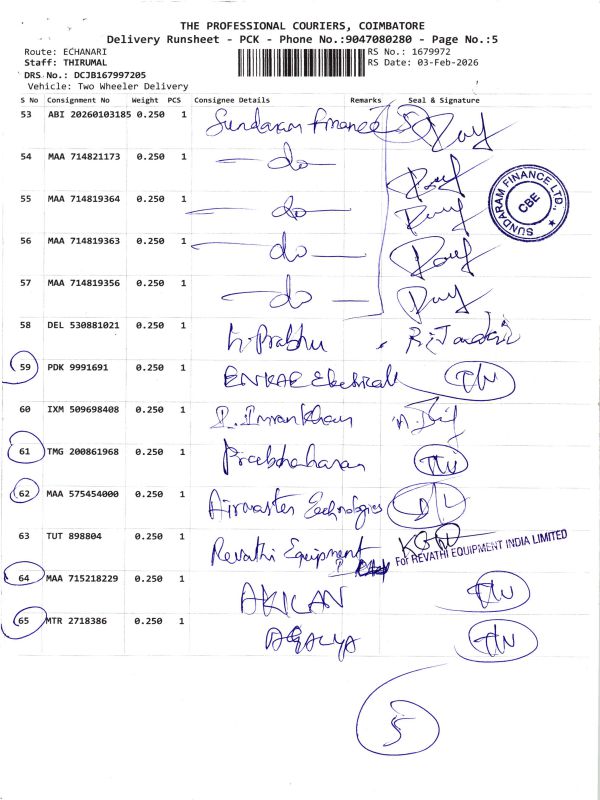 THE PROFESSIONAL COURIERS, COIMBATORE
Delivery Runsheet - PCK - Phone No.:9047080280 - Page No.:5
Route: ECHANARI RS No.: 1679972
Staff: THIRUMAL RS Date: 03-Feb-2026
DRS No.: DCJB167997205
Vehicle: Two Wheeler Delivery
S No Consignment No Weight PCS Consignee Details Remarks Seal & Signature
53 ABI 20260103185 0.250 1 Sundaram Finance
54 MAA 714821173 0.250 1 do
55 MAA 714819364 0.250 1 do
56 MAA 714819363 0.250 1 do
57 MAA 714819356 0.250 1 do
SUNDARAM FINANCE LTD., CBE
58 DEL 530881021 0.250 1 Prabhu
59 PDK 9991691 0.250 1 ENKAE Electricals
60 IXM 509698408 0.250 1 Imran Khan
61 TMG 200861968 0.250 1 Prabhaharan
62 MAA 575454000 0.250 1 Airmaster Technologies D/L
63 TUT 898804 0.250 1 Revathi Equipment
For REVATHI EQUIPMENT INDIA LIMITED
64 MAA 715218229 0.250 1 AKILAN
65 MTR 2718386 0.250 1 AGALYA
5